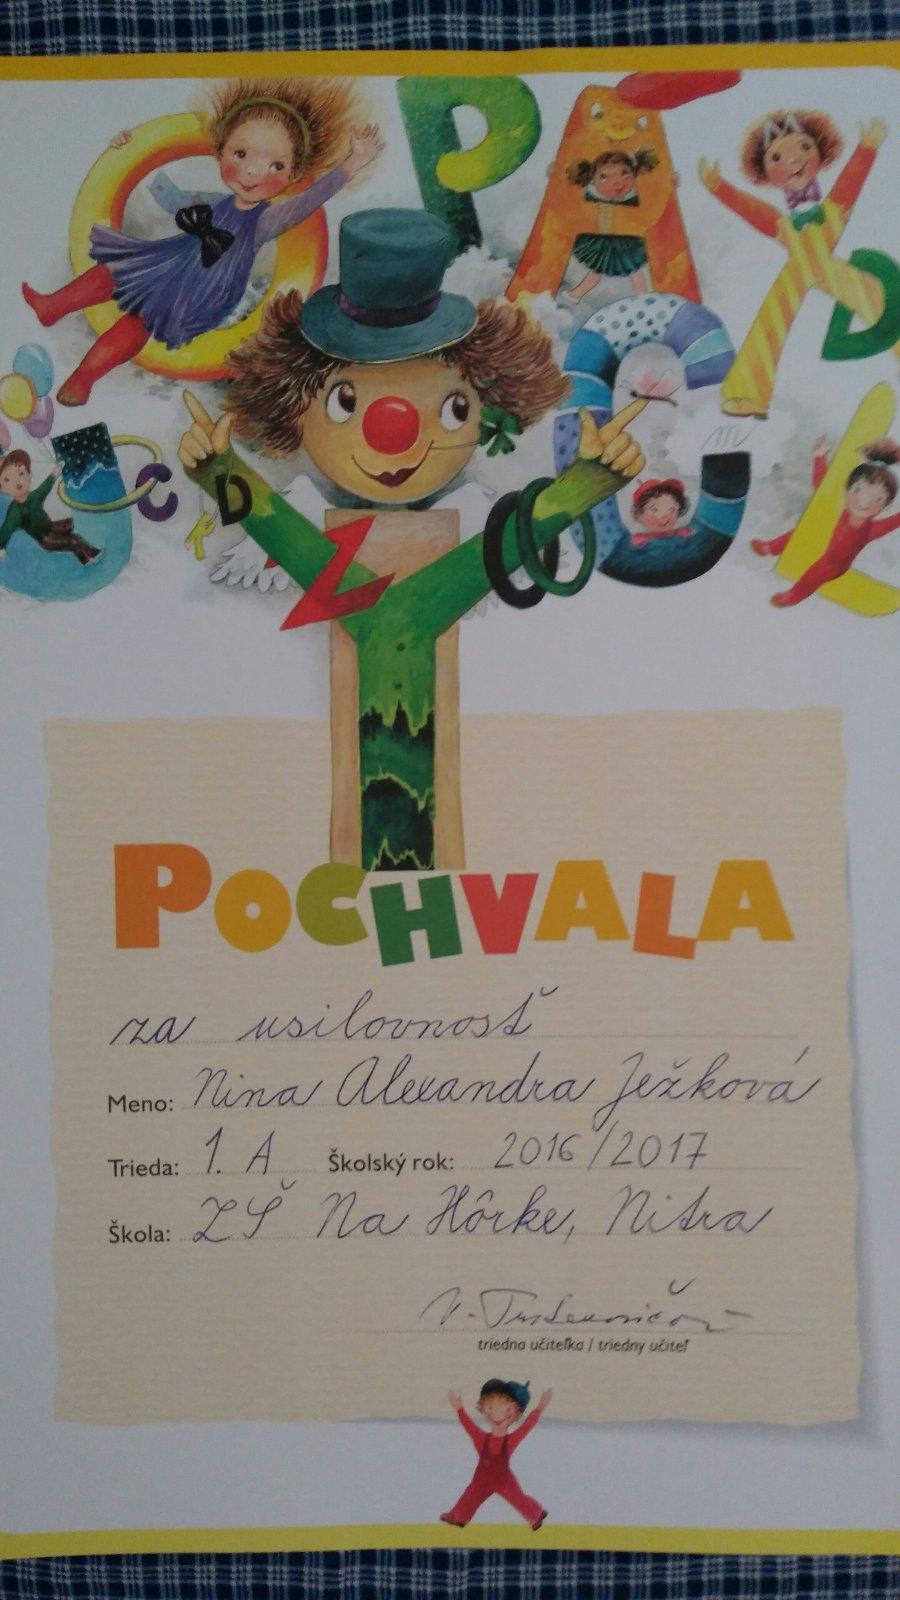 POCHVALA
za usilovnosť
Meno: Nina Alexandra Ježková
Trieda: 1. A Školský rok: 2016/2017
Škola: ZŠ Na Hôrke, Nitra
triedna učiteľka / triedny učiteľ